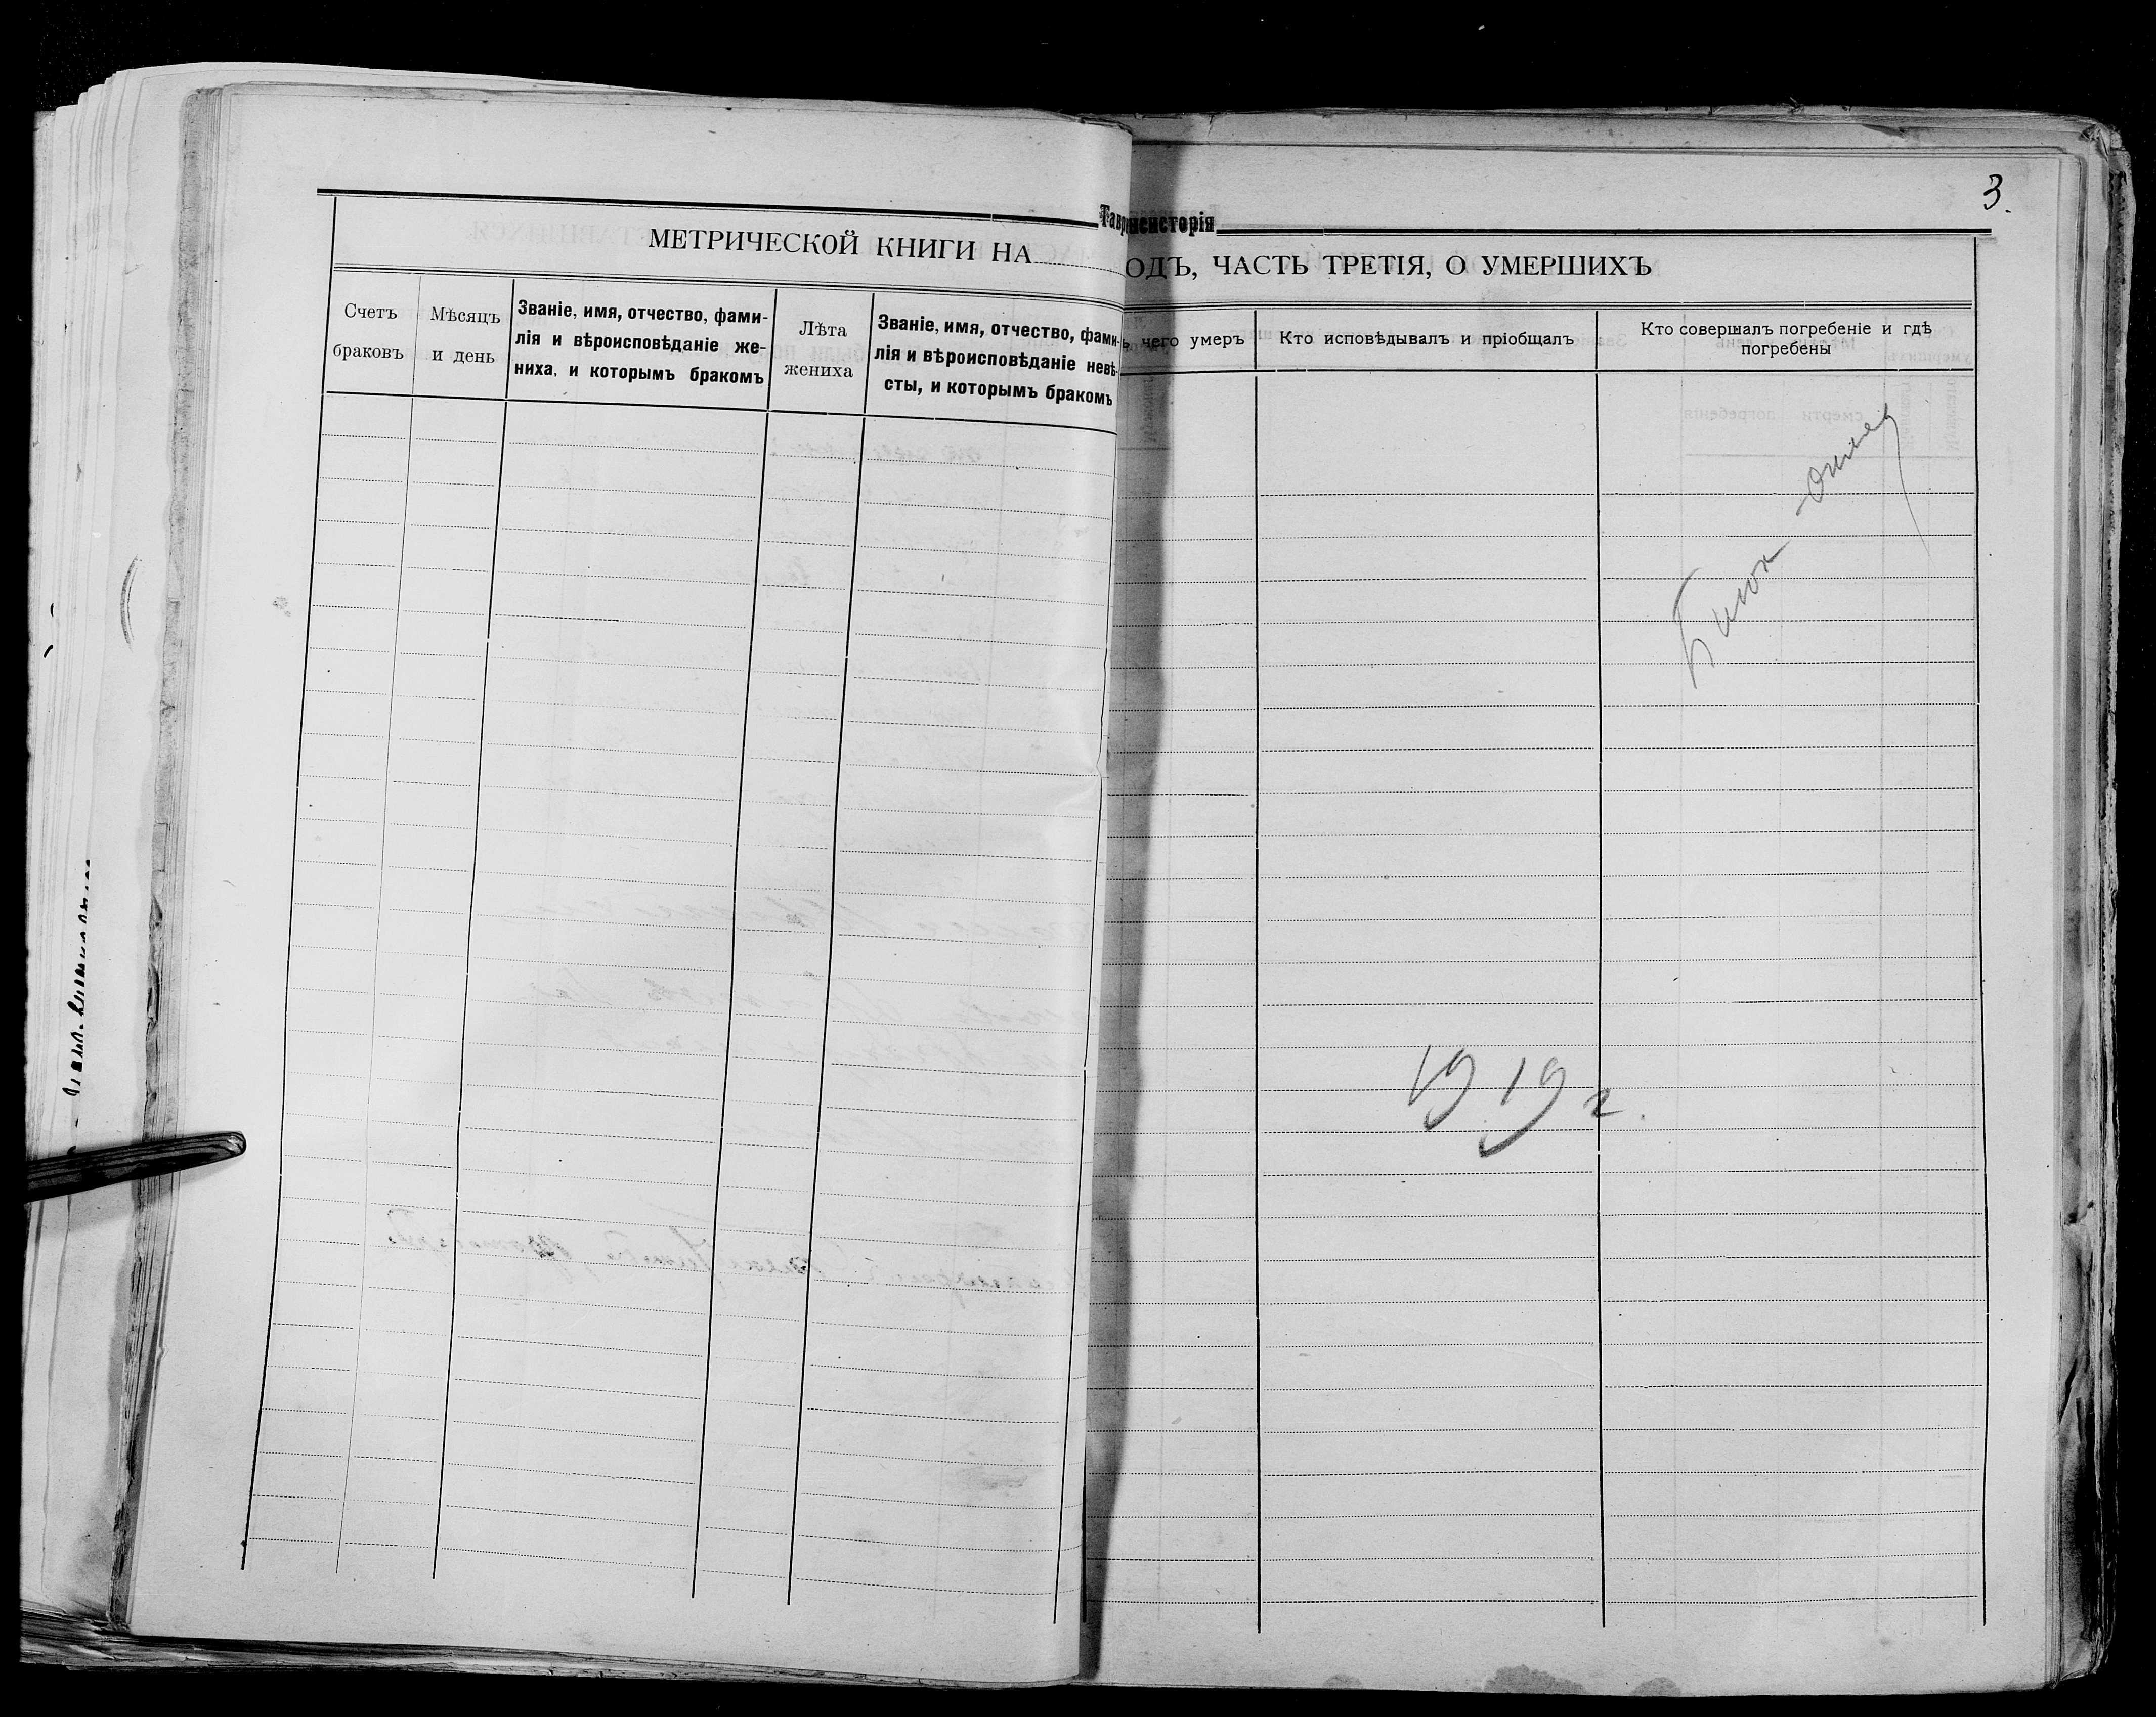 3.
МЕТРИЧЕСКОЙ КНИГИ НА
Счетъ браковъ
Мѣсяцъ и день
Званіе, имя, отчество, фами-
лія и вѣроисповѣданіе же-
ниха, и которымъ бракомъ
Лѣта жениха
Званіе, имя, отчество, фами-
лія и вѣроисповѣданіе невѣ-
сты, и которымъ бракомъ
ОДЪ, ЧАСТЬ ТРЕТІЯ, О УМЕРШИХЪ
чего умеръ
Кто исповѣдывалъ и пріобщалъ
Кто совершалъ погребеніе и гдѣ
погребены
1919 г.